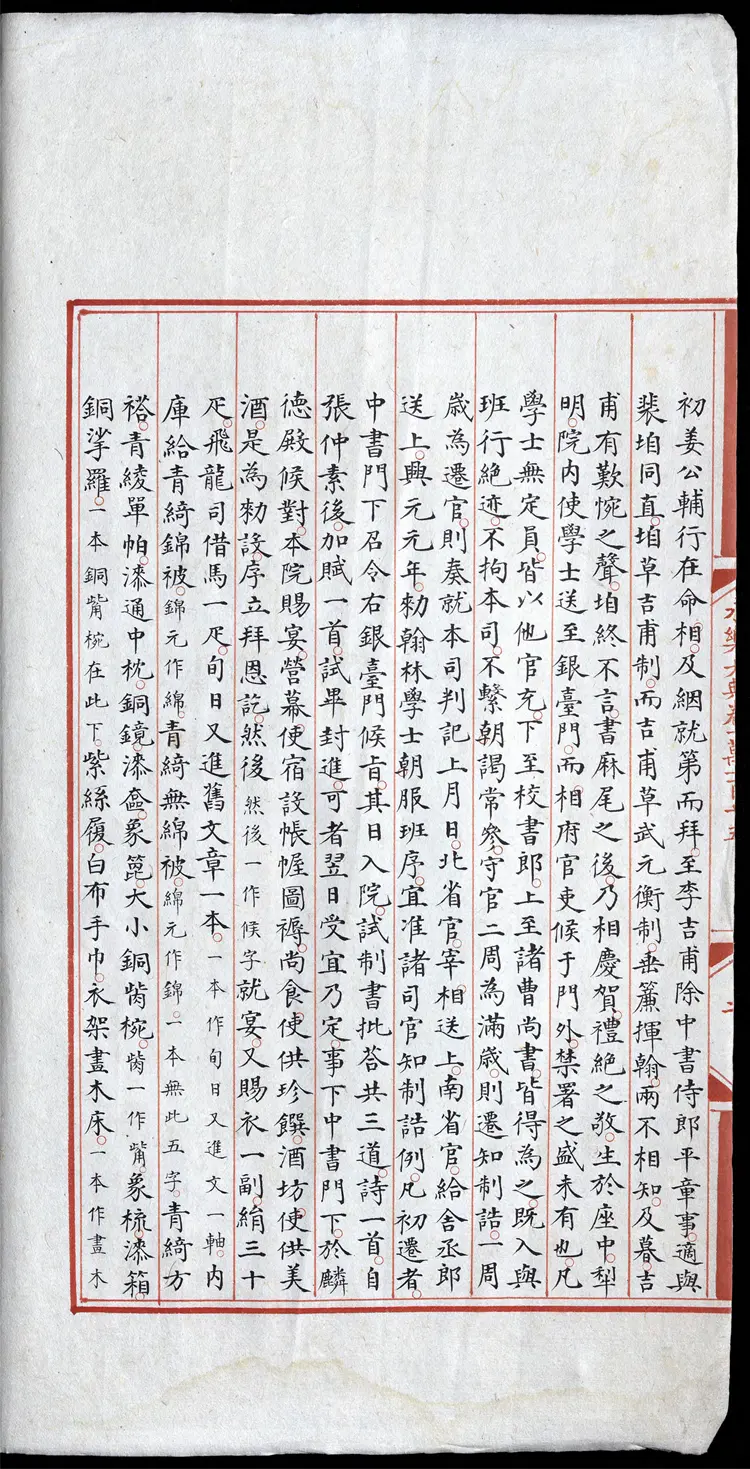 初姜公輔行在命相及絪就第而拜至李吉甫除中書侍郎平章事適與
裴垍同直垍草吉甫制而吉甫草武元衡制垂簾揮翰兩不相知及暮吉
甫有歎惋之聲垍終不言書麻尾之後乃相慶賀禮絕之敬生於座中犁
明院內使學士送至銀臺門而相府官吏候于門外禁署之盛未有也凡
學士無定員皆以他官充下至校書郎上至諸曹尚書皆得為之既入與
班行絕迹不拘本司不繫朝謁常參守官二周為滿歲則遷知制誥一周
歲為遷官則奏就本司判記上月日北省官宰相送上南省官給舍丞郎
送上興元元年勑翰林學士朝服班序宜准諸司官知制誥例凡初遷者
中書門下召令右銀臺門候旨其日入院試制書批荅共三道詩一首自
張仲素後加賦一首試畢封進可者翌日受宣乃定事下中書門下於麟
德殿候對本院賜宴營幕使宿設帳幄圖褥尚食使供珍饌酒坊使供美
酒是為勑設序立拜恩訖然後然後一作候字就宴又賜衣一副絹三十
疋飛龍司借馬一疋旬日又進舊文章一本一本作旬日又進文一軸內
庫給青綺錦被錦元作綿青綺無綿被綿元作錦一本無此五字青綺方
褡青綾單帕漆通中枕銅鏡漆奩象篦大小銅觜椀觜一作觜象梳漆箱
銅挲羅一本銅觜椀在此下紫絲履白布手巾衣架畫木床一本作畫木
永樂大典卷一萬一百十五
二